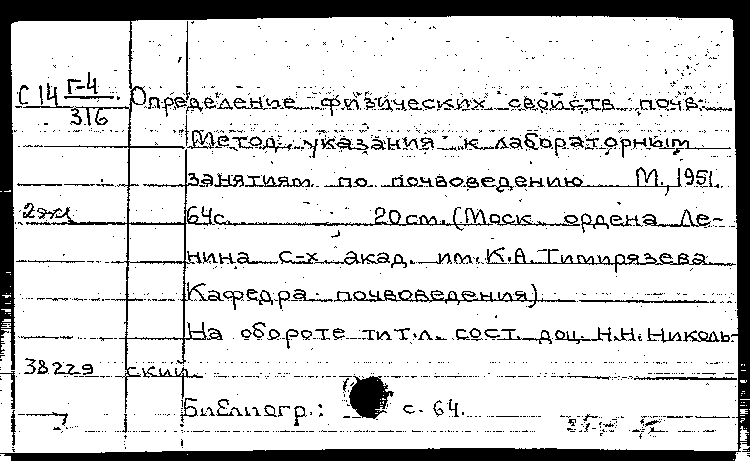 С 14 Г-4/316 Определение физических свойств почв.
Метод. указания к лабораторным
занятиям по почвоведению М., 1951.
2экз 64с. 20см. (Моск. ордена Ле-
нина с-х. акад. им. К.А. Тимирязева
Кафедра почвоведения)
На обороте тит.л. сост. доц. Н.Н. Николь-
38229 ский.
Библиогр.: с. 64.